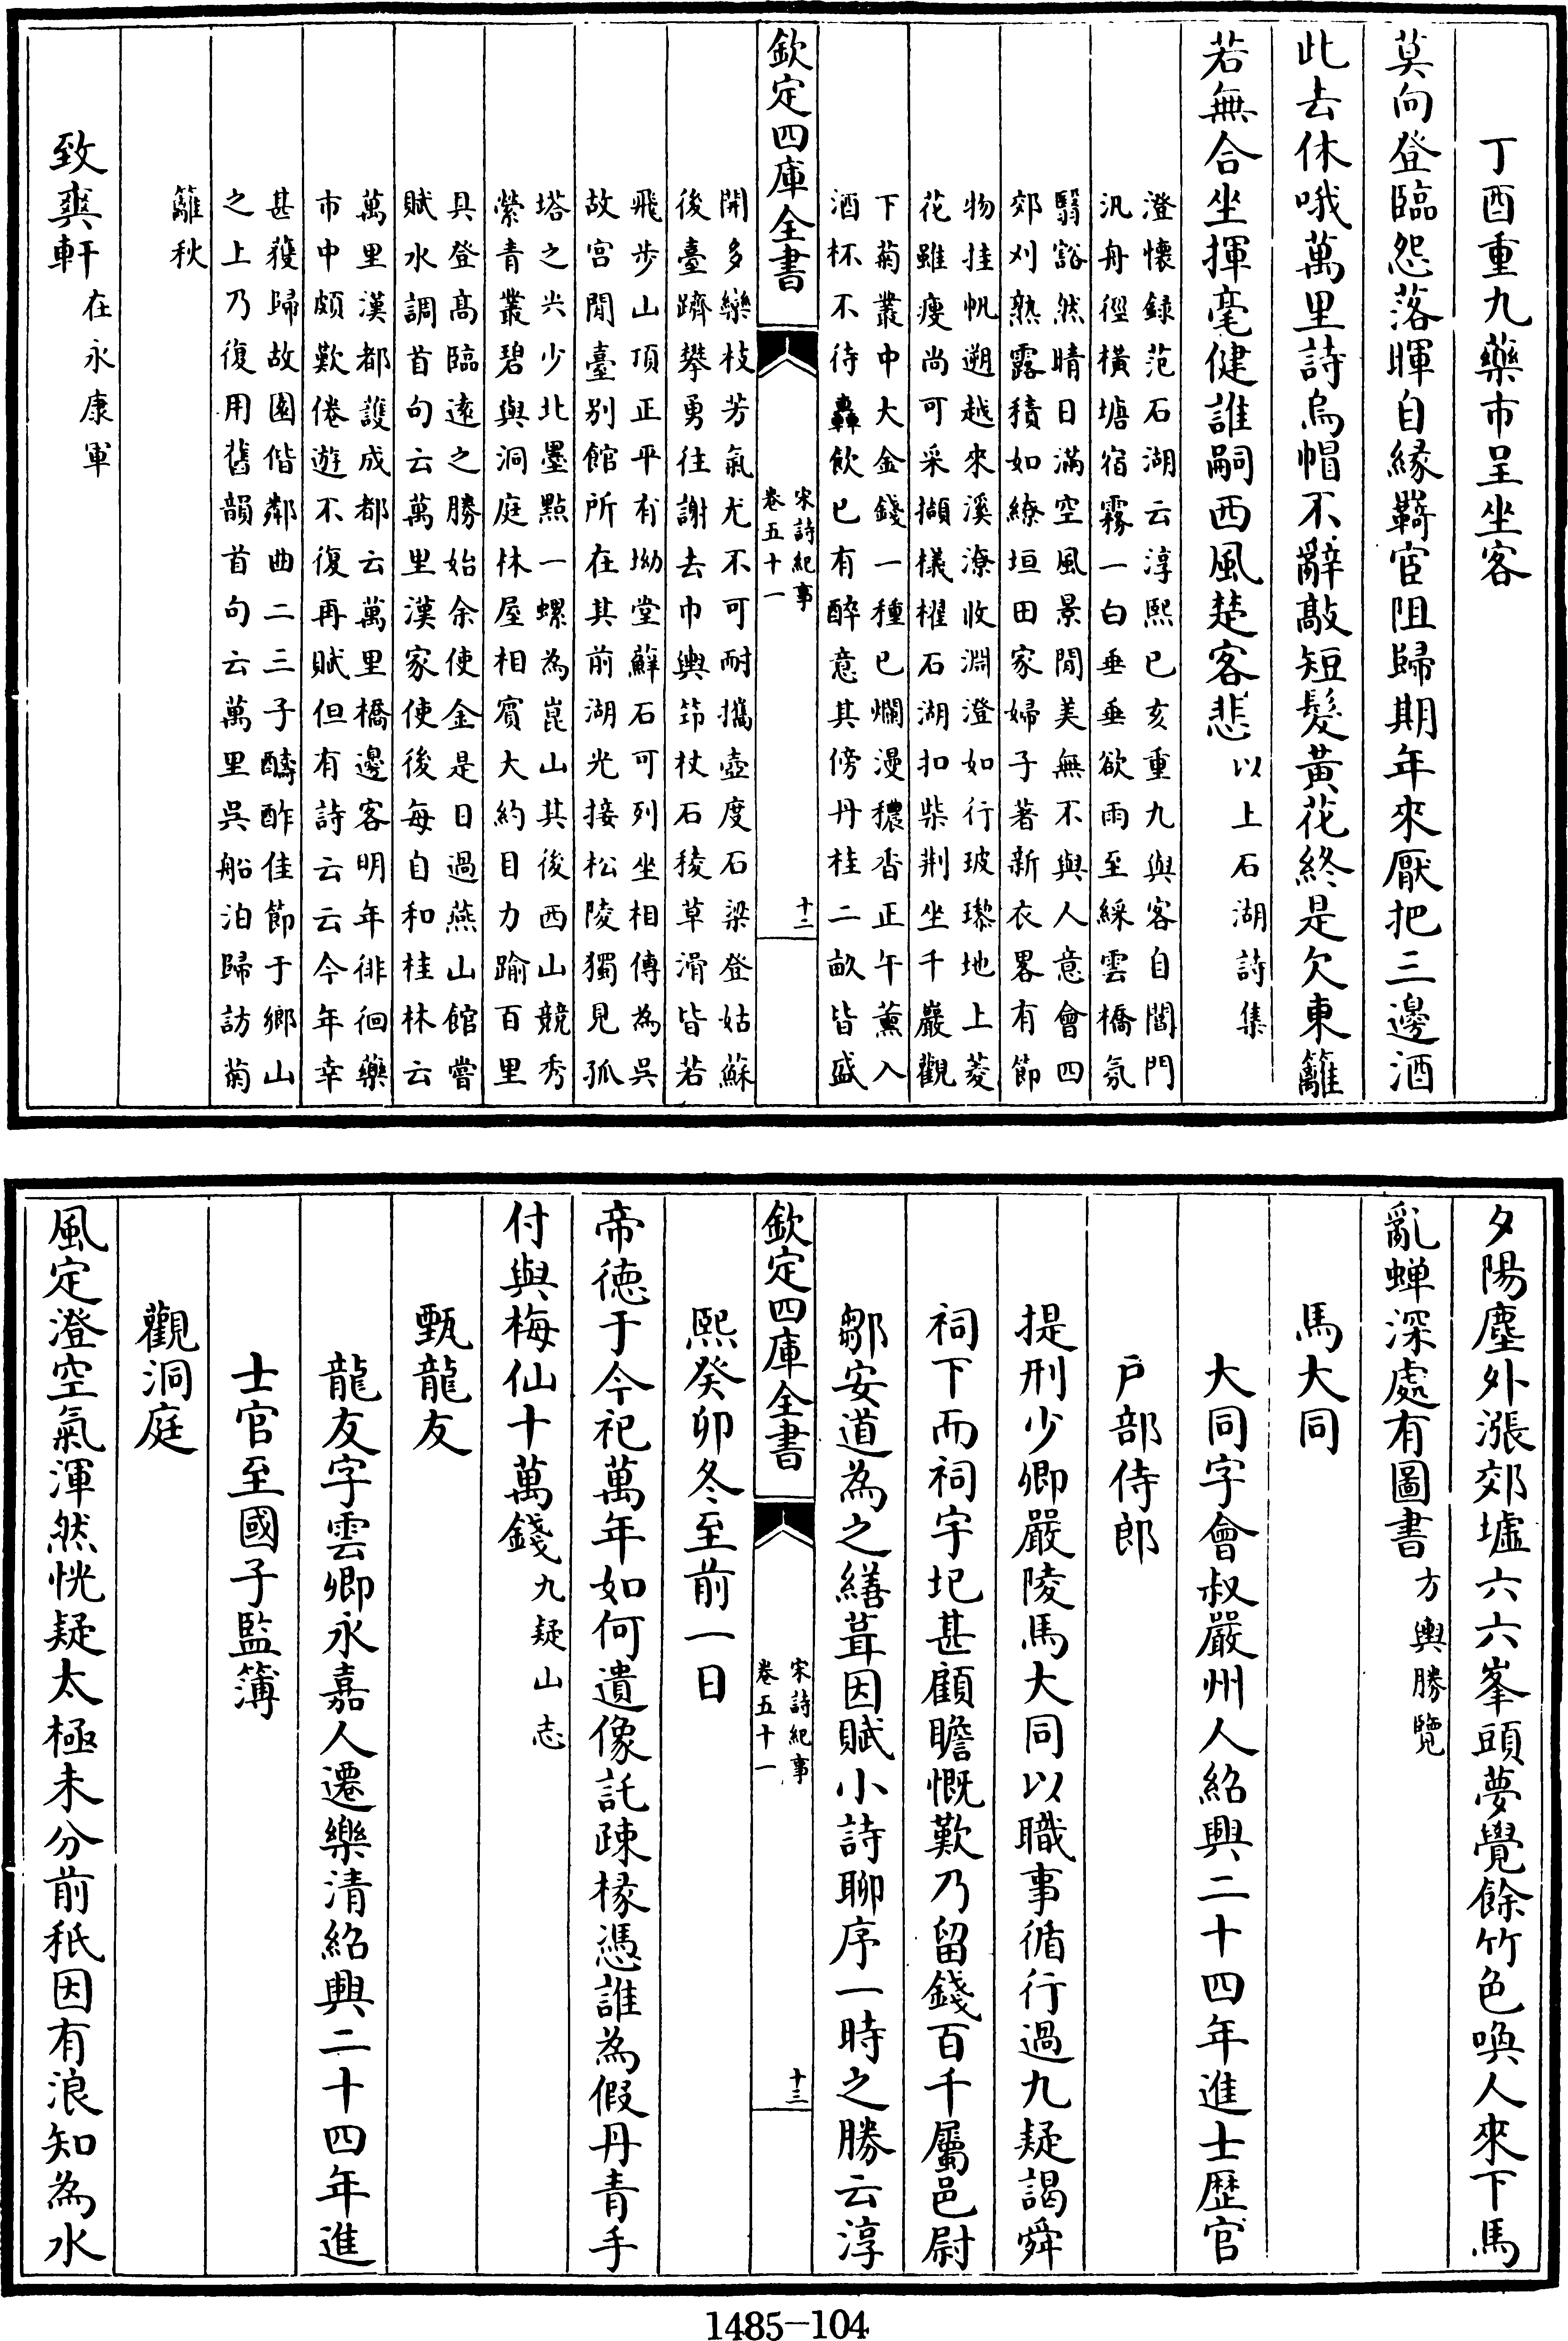 丁酉重九藥市呈坐客
莫向登臨怨落暉自緣羇宦阻歸期年來厭把三邊酒
此去休哦萬里詩烏帽不辭敲短髮黃花終是欠東籬
若無合坐揮毫健誰嗣西風楚客悲以上石湖詩集
澄懷錄范石湖云淳熙已亥重九與客自閶門
汎舟徑橫塘宿霧一白垂垂欲雨至綵雲橋氛
翳豁然晴日滿空風景閒美無不與人意會四
郊刈熟露積如繚垣田家婦子著新衣畧有節
物挂帆遡越來溪潦收淵澄如行玻瓈地上菱
花雖瘦尚可采擷檥櫂石湖扣柴荆坐千巖觀
下菊叢中大金錢一種已爛漫穠香正午薰入
酒杯不待轟飲已有醉意其傍丹桂二畝皆盛
欽定四庫全書
宋詩紀事
卷五十一
十二
開多欒枝芳氣尤不可耐攜壺度石梁登姑蘇
後臺躋攀勇往謝去巾輿筇杖石稜草滑皆若
飛步山頂正平有坳堂蘚石可列坐相傳為吳
故宮閒臺别館所在其前湖光接松陵獨見孤
塔之尖少北墨點一螺為崑山其後西山競秀
縈青叢碧與洞庭林屋相賓大約目力踰百里
具登高臨遠之勝始余使金是日過燕山館嘗
賦水調首句云萬里漢家使後每自和桂林云
萬里漢都護成都云萬里橋邊客明年徘徊藥
市中頗歎倦遊不復再賦但有詩云云今年幸
甚獲歸故園偕鄰曲二三子酬酢佳節于鄉山
之上乃復用舊韻首句云萬里吳船泊歸訪菊
籬秋
致爽軒在永康軍
夕陽塵外漲郊墟六六峯頭夢覺餘竹色喚人來下馬
亂蟬深處有圖書方輿勝覽
馬大同
大同字會叔嚴州人紹興二十四年進士歷官
戶部侍郎
提刑少卿嚴陵馬大同以職事循行過九疑謁舜
祠下而祠宇圮甚顧瞻慨歎乃留錢百千屬邑尉
鄒安道為之繕葺因賦小詩聊序一時之勝云淳
欽定四庫全書
宋詩紀事
卷五十一
十三
熙癸卯冬至前一日
帝德于今祀萬年如何遺像託疎椽憑誰為假丹青手
付與梅仙十萬錢九疑山志
甄龍友
龍友字雲卿永嘉人遷樂清紹興二十四年進
士官至國子監簿
觀洞庭
風定澄空氣渾然恍疑太極未分前秖因有浪知為水
1485-104